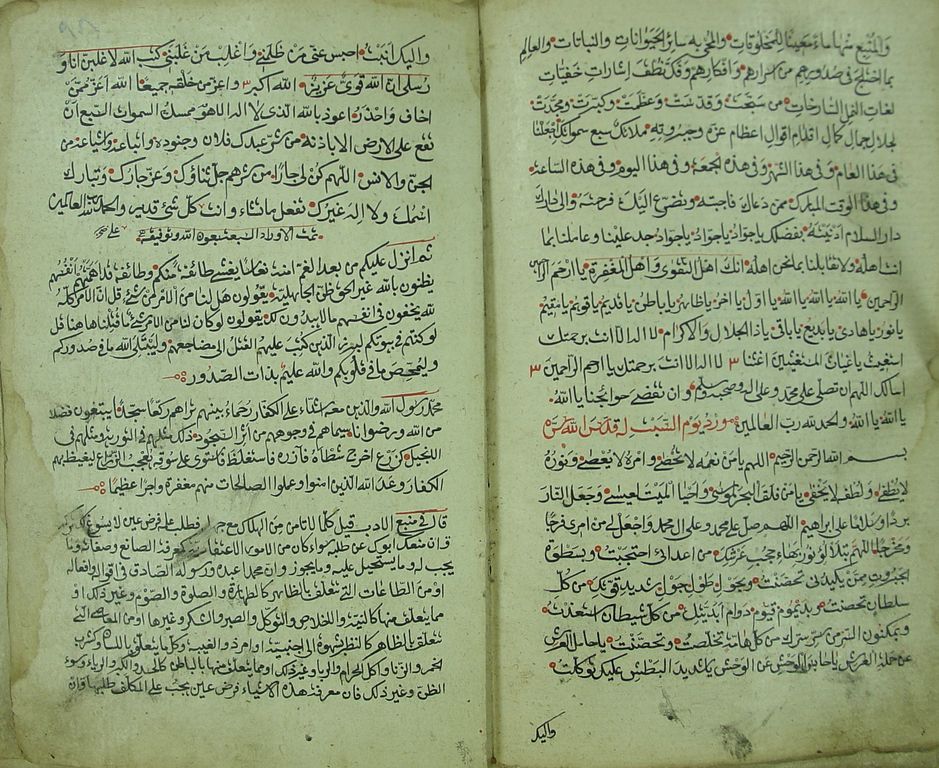 والمنبع منها ماء معينا للمخلوقات والمحي به سائر الحيوانات والنباتات والعالم
بما اختلج في صدورهم من اسرارهم وافكارهم وفك نطف اشارات خفيات
لغات النمل السارحات من سبحت وقدست وعظمت وكبرت ومجدت
لجلال جمال كمال اقدام اقوال اعظام عزه وجبروته ملائكة سبع سمواتك اجعلنا
في هذا العام وفي هذا الشهر وفي هذه الجمعة وفي هذا اليوم وفي هذه الساعة
وفي هذا الوقت المبارك ممن دعاك فاجبته وتضرع اليك فرحمته والى دارك
دار السلام ادنيته بفضلك يا جواد يا جواد يا جواد جد علينا وعاملنا بما
انت اهله ولا تقابلنا بما نحن اهله انك اهل التقوى واهل المغفرة يا ارحم
الراحمين يا الله يا الله يا الله يا اول يا آخر يا ظاهر يا باطن يا قديم يا قويم يا مقيم
يا نور يا هادي يا بديع يا باقي يا ذا الجلال والاكرام لا اله الا انت برحمتك
استغيث يا غياث المستغيثين اغثنا ٣ لا اله الا انت برحمتك يا ارحم الراحمين ٣
اسالك اللهم ان تصلي على محمد وعلى آله وصحبه وسلم وان تقضي حوائجنا يا الله
يا الله يا الله والحمد لله رب العالمين ورد يوم السبت له قدس الله سره
بسم الله الرحمن الرحيم اللهم يا من نعمه لا تحصى وامره لا يعصى ونوره
لا يطفى ولطفه لا يخفى يا من فلق البحر لموسى واحيا الميت لعيسى وجعل النار
بردا وسلاما على ابراهيم اللهم صل على محمد وعلى آل محمد واجعل لي من امري فرجا
ومخرجا اللهم بتلألؤ نور بهاء حجب عرشك من اعدائي احتجبت وبسطوة
الجبروت ممن يكيدني تحصنت وبحول طول جول شديد قوتك من كل
سلطان تحصنت وبديموم قيوم دوام ابديتك من كل شيطان استعذت
وبمكنون السر من سر سرك من كل هامة تخلصت وتحصنت يا حامل العرش
عن حملة العرش يا حابس الوحش عن الوحش يا شديد البطش عليك توكلت
واليك
واليك انبت احبس عني من ظلمني واغلب من غلبني كتب الله لاغلبن انا و
رسلي ان الله قوي عزيز الله اكبر ٣ واعز من خلقه جميعا الله اعز ممن
اخاف واحذر اعوذ بالله الذي لا اله الا هو ممسك السموات السبع ان
تقع على الارض الا باذنه من شر عبدك فلان وجنوده واتباعه واشياعه من
الجن والانس اللهم كن لي جارا من شرهم جل ثناؤك وعز جارك وتبارك
اسمك ولا اله غيرك تفعل ما تشاء وانت كل شيء قدير والحمد لله رب العالمين
تمت الاوراد السبعة بعون الله وتوفيقه
ثم انزل عليكم من بعد الغم امنة نعاسا يغشى طائفة منكم وطائفة قد اهمتهم انفسهم
يظنون بالله غير الحق ظن الجاهلية يقولون هل لنا من الامر من شيء قل ان الامر كله
لله يخفون في انفسهم ما لا يبدون لك يقولون لو كان لنا من الامر شيء ما قتلنا هاهنا قل
لو كنتم في بيوتكم لبرز الذين كتب عليهم القتل الى مضاجعهم وليبتلي الله ما في صدوركم
وليمحص ما في قلوبكم والله عليم بذات الصدور
محمد رسول الله والذين معه اشداء على الكفار رحماء بينهم تراهم ركعا سجدا يبتغون فضلا
من الله ورضوانا سيماهم في وجوههم من اثر السجود ذلك مثلهم في التورية ومثلهم في
الانجيل كزرع اخرج شطأه فآزره فاستغلظ فاستوى على سوقه يعجب الزراع ليغيظ بهم
الكفار وعد الله الذين امنوا وعملوا الصالحات منهم مغفرة واجرا عظيما
قال في منبع الادب قيل كلما لا تامن من الهلاك مع جهله فطلب علمه فرض عين لا يسوغ لك تركه
وان منعك ابوك عن طلبه سواء كان من الامور الاعتقادية كمعرفة الصانع وصفاته وما
يجب له وما يستحيل عليه وما يجوز وان محمدا عبده ورسوله الصادق في اقواله وافعاله
او من الطاعات التي تتعلق بالظاهر كالطهارة والصلوة والصوم وغير ذلك او
مما يتعلق منها كالنية والاخلاص والتوكل والصبر والشكر وغيرها او من المعاصي التي
تتعلق بالظاهر كالنظر بشهوة الى اجنبية او امرد والغيبة وكل ما يتعلق باللسان وكشرب
الخمر والزنا واكل الحرام والربا وغير ذلك او مما يتعلق منها بالباطن كالحسد والكبر والرياء وسوء
الظن وغير ذلك فان معرفة هذه الاشياء فرض عين يجب على المكلف طلبها وان